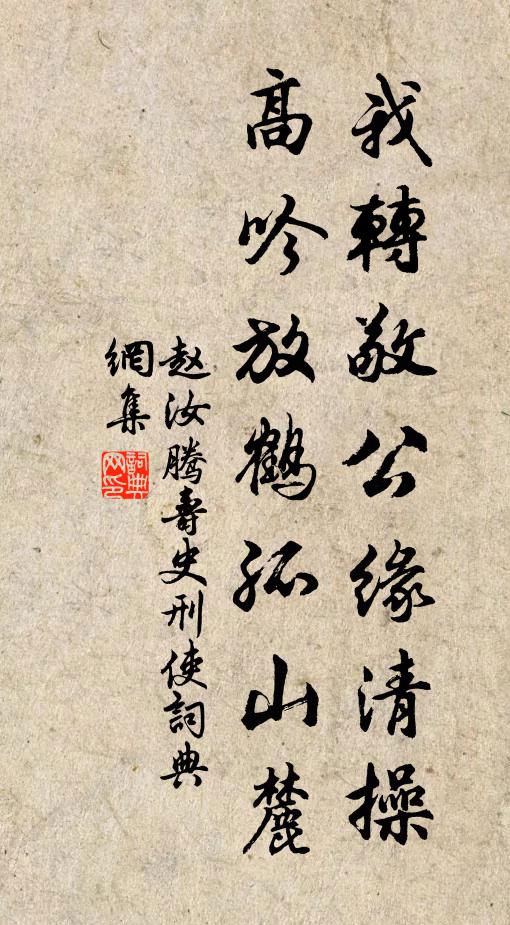 我轉敬公緣清操
高吟放鶴孤山麓
赵汝腾壽史刑使詞典
網集
詞典
网印